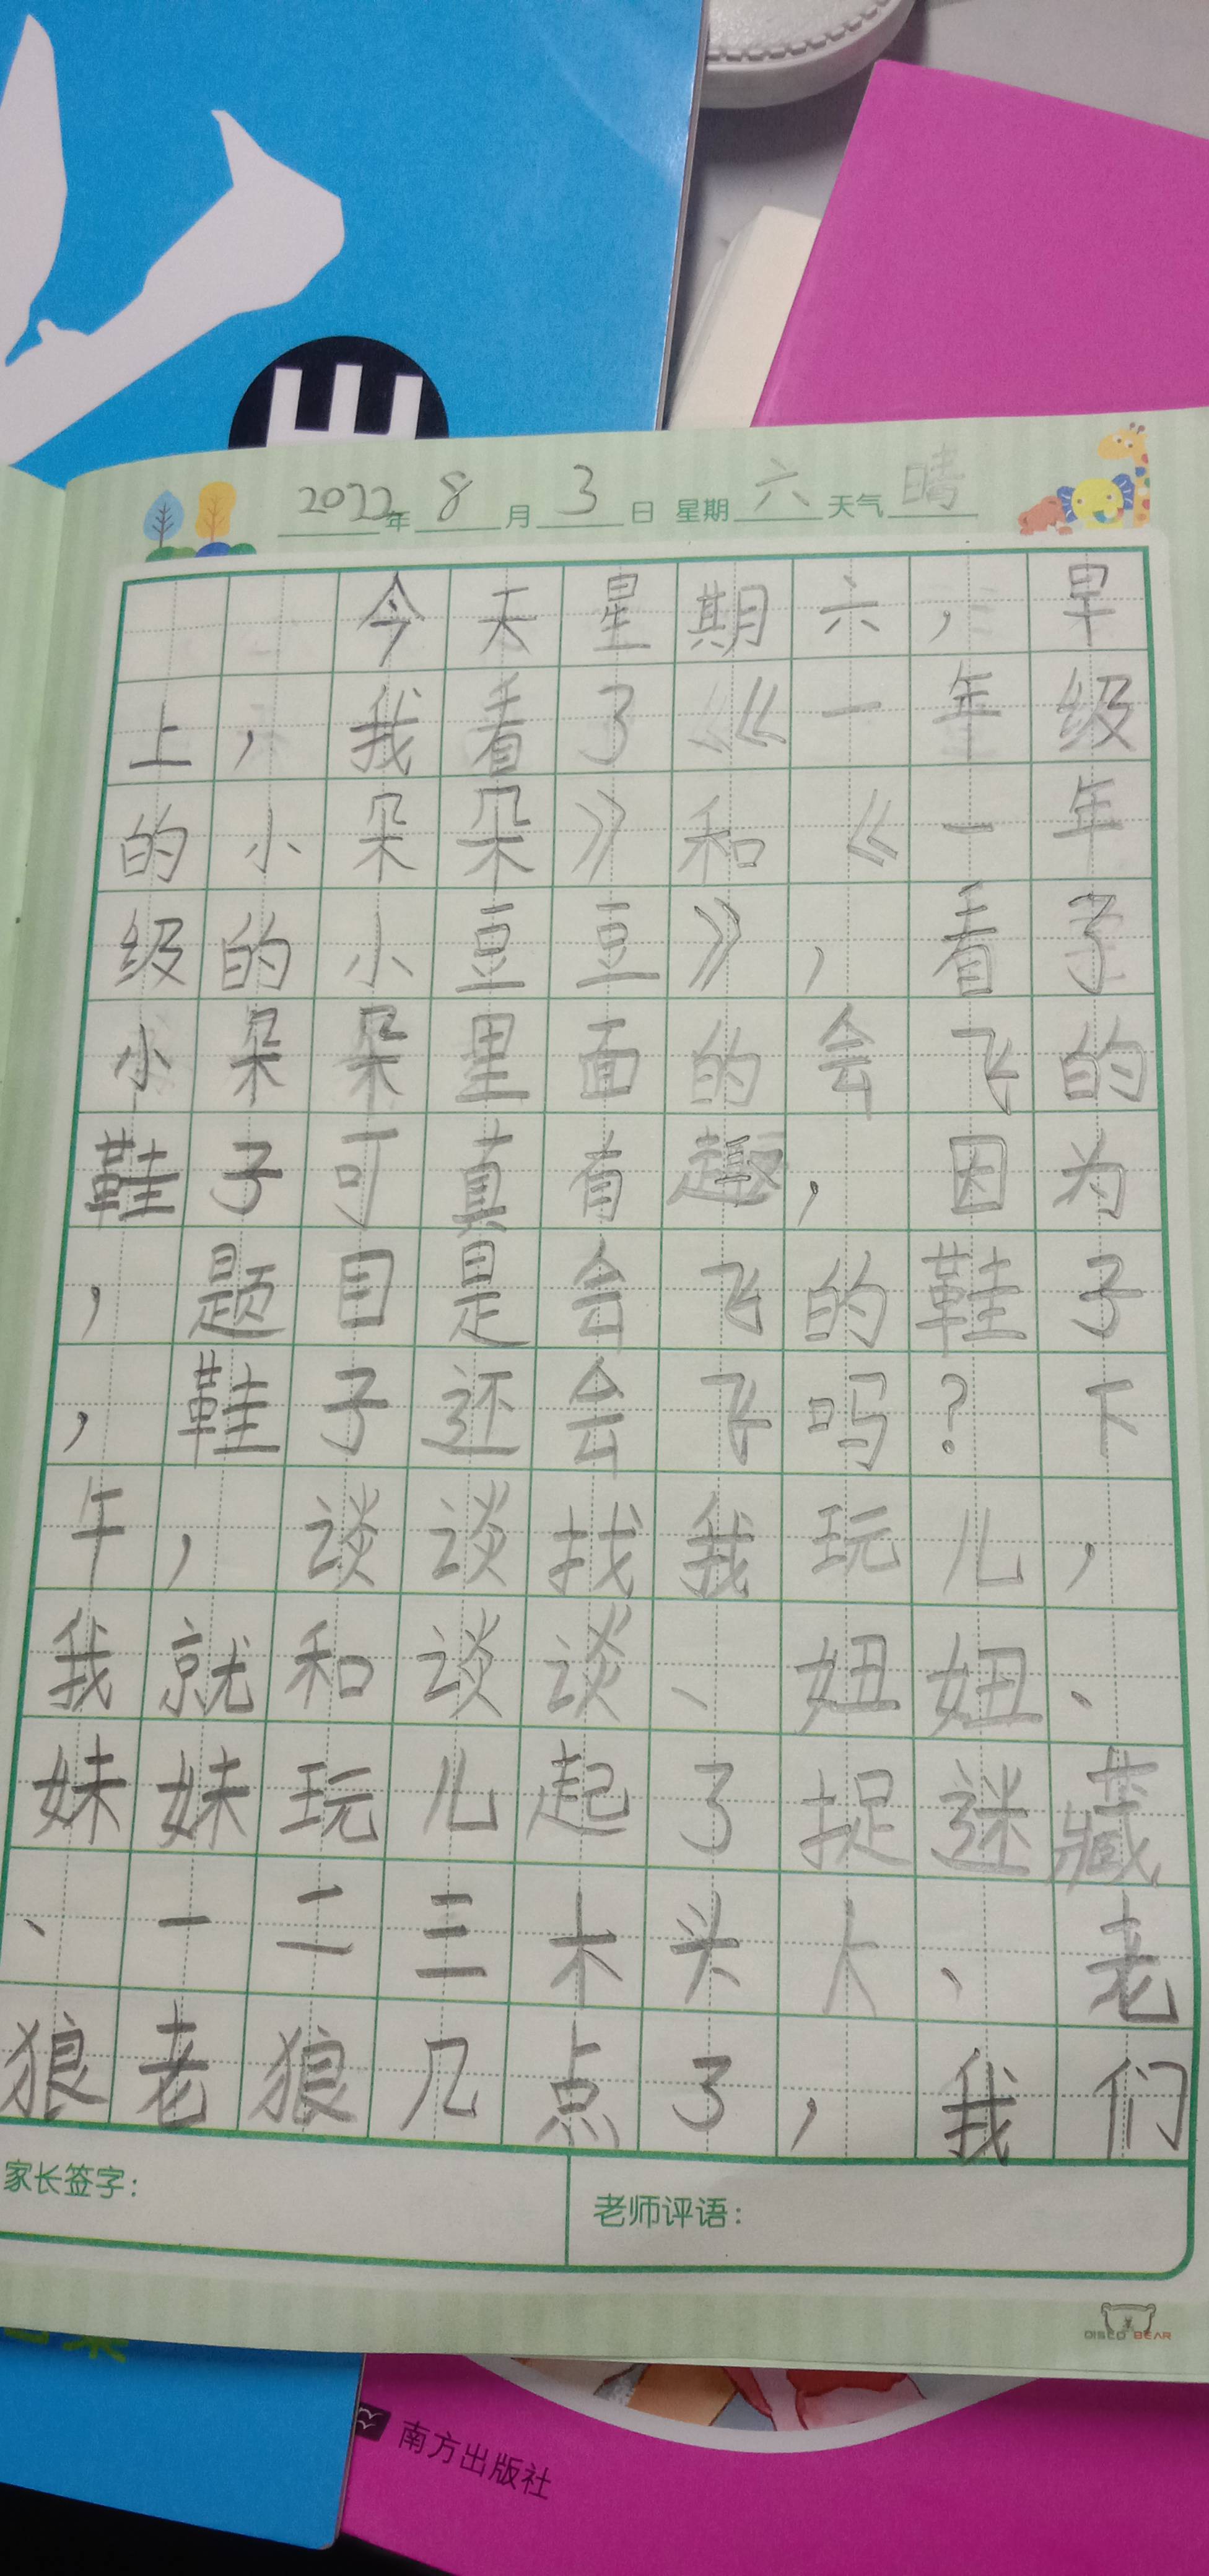 2022年8月3日 星期六 天气晴
今天星期六，早
上，我看了《一年级
的小朵朵》和《一年
级的小豆豆》，看了
小朵朵里面的会飞的
鞋子可真有趣，因为
，题目是会飞的鞋子
，鞋子还会飞吗？下
午，谈谈找我玩儿，
我就和谈谈、妞妞、
妹妹玩儿起了捉迷藏
、一二三木头人、老
狼老狼几点了，我们
家长签字：
老师评语：
DISCO BEAR
南方出版社